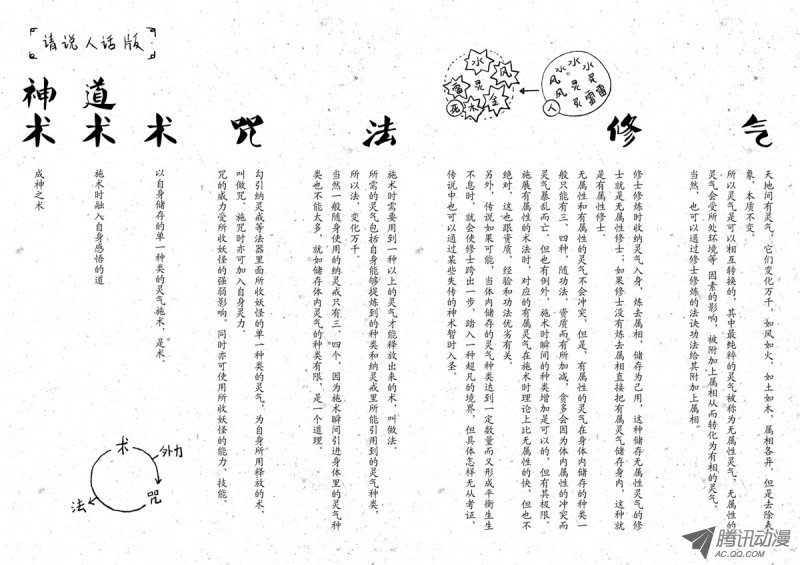 请说人话版
气
天地间有灵气，它们变化万千，如风如火，如土如木，属相各异，但是去除表
象，本质不变。
所以灵气是可以相互转换的，其中最纯粹的灵气被称为无属性灵气，无属性的
灵气会受所处环境等因素的影响，被附加上属相从而转化为有相的灵气。
当然，也可以通过修士修炼的法诀功法给其附加上属相。
修
修士修炼时收纳灵气入身，炼去属相，储存为己用，这种储存无属性灵气的修
士就是无属性修士；如果修士没有炼去属相直接把有属灵气储存身内，这种就
是有属性修士。
无属性和有属性的灵气不会冲突，但是，有属性的灵气在身体内储存的种类一
般只能有三、四种，随功法、资质而有所加减，贪多会因为体内属性的冲突而
灵气暴乱而亡。但也有例外，施术时瞬间的种类增加是可以的，但有其极限。
施展有属性的术法时，对应的有属灵气在施术时理论上比无属性的快，但也不
绝对，这也跟资质、经验和功法优劣有关。
另外，传说如果可能，当体内储存的灵气种类达到一定数量而又形成平衡生生
不息时，就会使修士跨出一步，踏入一种超凡的境界，但具体怎样无从考证，
传说中也可以通过某些失传的神术暂时入圣。
水
风
雷
灵
火
木
土
水
水
水
风
灵
灵
风
灵
雷
雷
人
法
施术时需要用到一种以上的灵气才能释放出来的术，叫做法。
所需的灵气包括自身能够提炼到的种类和纳灵戒里所能引用到的灵气种类，
所以法，变化万千。
当然一般随身使用的纳灵戒只有三、四个，因为施术瞬间引进身体里的灵气种
类也不能太多，就如储存体内灵气的种类有限，是一个道理。
咒
勾引纳灵戒等法器里面所收妖怪的单一种类的灵气，为自身所用释放的术，
叫做咒。施咒时亦可加入自身灵力。
咒的威力受所收妖怪的强弱影响。同时亦可使用所收妖怪的能力、技能。
术
以自身储存的单一种类的灵气施术，是术。
道术
施术时融入自身感悟的道
神术
成神之术
术
外力
咒
法
腾讯动漫
AC.QQ.COM